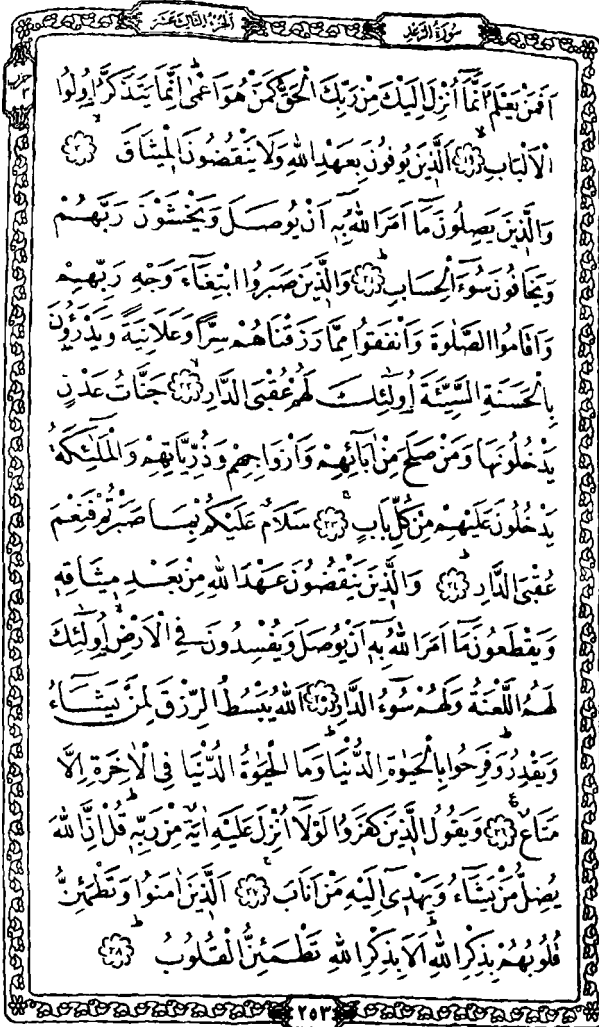 سورة الرعد
الجزء الثالث عشر
حزب
٢
اَفَمَنْ يَعْلَمُ اَنَّمَٓا اُنْزِلَ اِلَيْكَ مِنْ رَبِّكَ الْحَقُّ كَمَنْ هُوَ اَعْمٰىۜ اِنَّمَا يَتَذَكَّرُ اُو۬لُوا
الْاَلْبَابِۙ ﴿١٩﴾ اَلَّذ۪ينَ يُوفُونَ بِعَهْدِ اللّٰهِ وَلَا يَنْقُضُونَ الْم۪يثَاقَۙ ﴿٢٠﴾
وَالَّذ۪ينَ يَصِلُونَ مَٓا اَمَرَ اللّٰهُ بِه۪ٓ اَنْ يُوصَلَ وَيَخْشَوْنَ رَبَّهُمْ
وَيَخَافُونَ سُٓوءَ الْحِسَابِۜ ﴿٢١﴾ وَالَّذ۪ينَ صَبَرُوا ابْتِغَٓاءَ وَجْهِ رَبِّهِمْ
وَاَقَامُوا الصَّلٰوةَ وَاَنْفَقُوا مِمَّا رَزَقْنَاهُمْ سِرًّا وَعَلَانِيَةً وَيَدْرَؤُ۫نَ
بِالْحَسَنَةِ السَّيِّئَةَ اُو۬لٰٓئِكَ لَهُمْ عُقْبَى الدَّارِۙ ﴿٢٢﴾ جَنَّاتُ عَدْنٍ
يَدْخُلُونَهَا وَمَنْ صَلَحَ مِنْ اٰبَٓائِهِمْ وَاَزْوَاجِهِمْ وَذُرِّيَّاتِهِمْ وَالْمَلٰٓئِكَةُ
يَدْخُلُونَ عَلَيْهِمْ مِنْ كُلِّ بَابٍۚ ﴿٢٣﴾ سَلَامٌ عَلَيْكُمْ بِمَا صَبَرْتُمْ فَنِعْمَ
عُقْبَى الدَّارِۜ ﴿٢٤﴾ وَالَّذ۪ينَ يَنْقُضُونَ عَهْدَ اللّٰهِ مِنْ بَعْدِ م۪يثَاقِه۪
وَيَقْطَعُونَ مَٓا اَمَرَ اللّٰهُ بِه۪ٓ اَنْ يُوصَلَ وَيُفْسِدُونَ فِي الْاَرْضِۙ اُو۬لٰٓئِكَ
لَهُمُ اللَّعْنَةُ وَلَهُمْ سُٓوءُ الدَّارِ ﴿٢٥﴾ اَللّٰهُ يَبْسُطُ الرِّزْقَ لِمَنْ يَشَٓاءُ
وَيَقْدِرُۜ وَفَرِحُوا بِالْحَيٰوةِ الدُّنْيَاۜ وَمَا الْحَيٰوةُ الدُّنْيَا فِي الْاٰخِرَةِ اِلَّا
مَتَاعٌ۟ ﴿٢٦﴾ وَيَقُولُ الَّذ۪ينَ كَفَرُوا لَوْلَٓا اُنْزِلَ عَلَيْهِ اٰيَةٌ مِنْ رَبِّه۪ۜ قُلْ اِنَّ اللّٰهَ
يُضِلُّ مَنْ يَشَٓاءُ وَيَهْد۪ٓي اِلَيْهِ مَنْ اَنَابَۚ ﴿٢٧﴾ اَلَّذ۪ينَ اٰمَنُوا وَتَطْمَئِنُّ
قُلُوبُهُمْ بِذِكْرِ اللّٰهِۜ اَلَا بِذِكْرِ اللّٰهِ تَطْمَئِنُّ الْقُلُوبُۜ ﴿٢٨﴾
٢٥٣